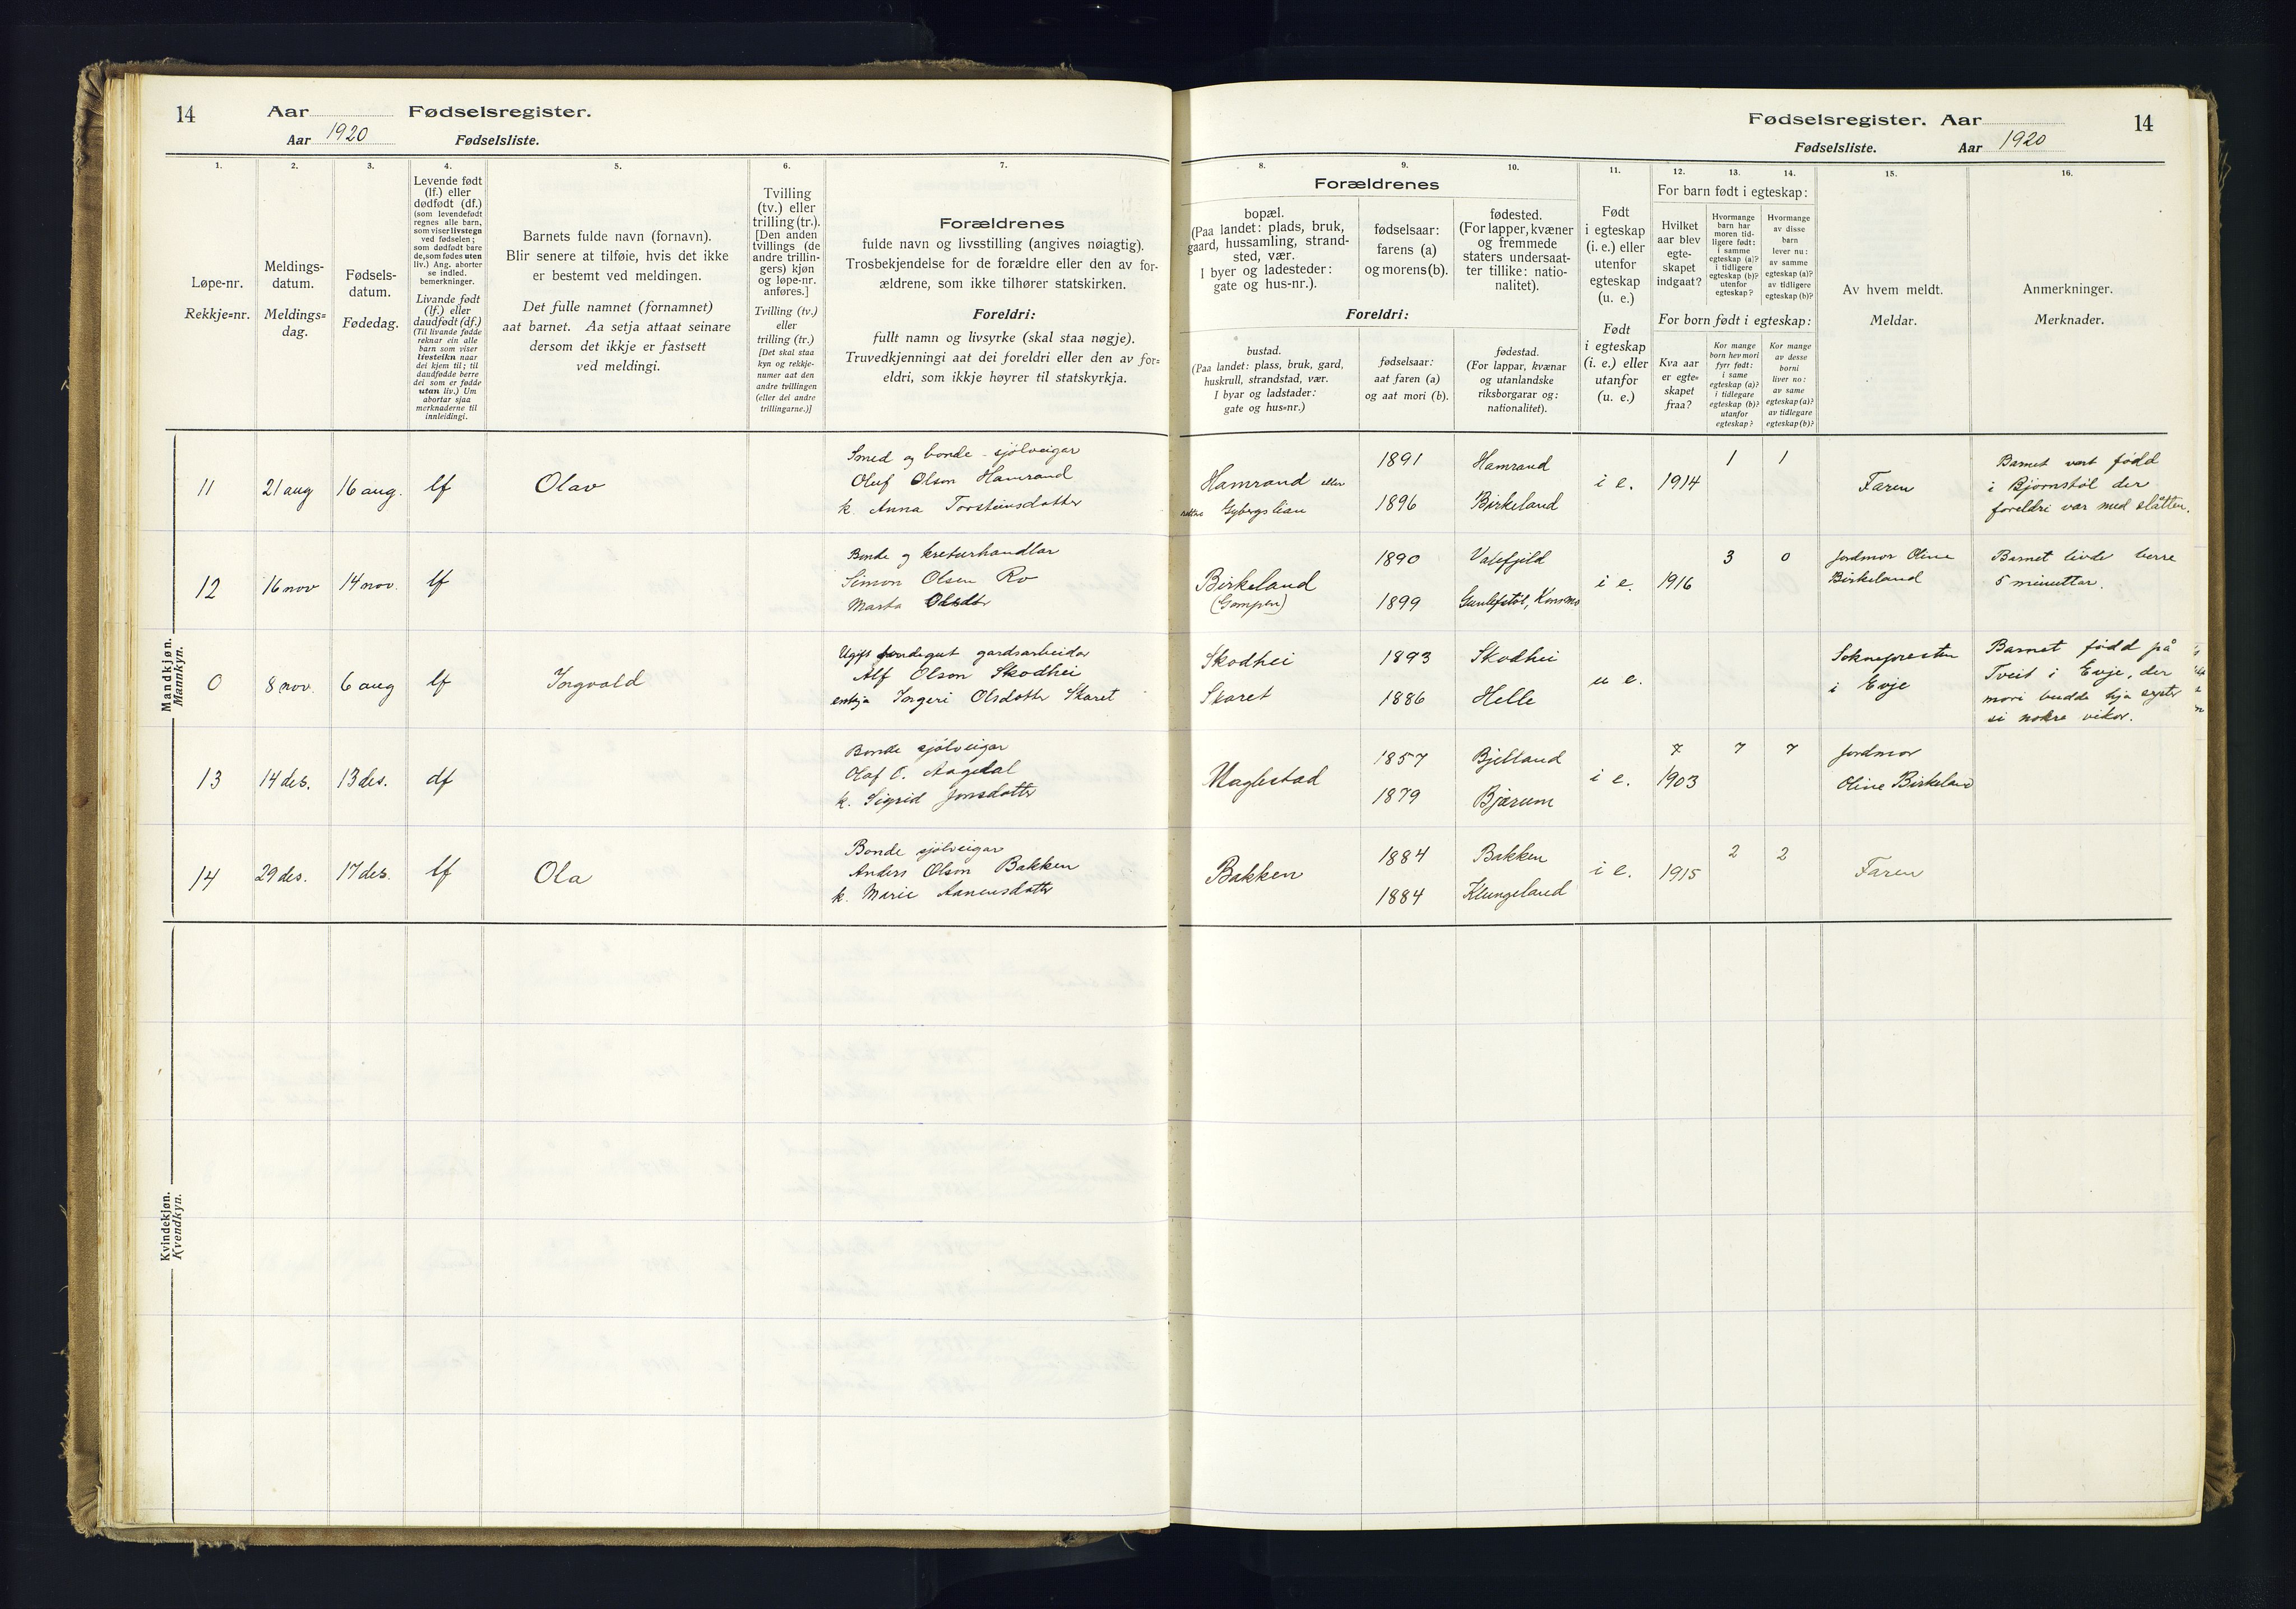 14
Aar Fødselsregister.
Aar 1920 Fødselsliste.
1.
2.
3.
4.
5.
6.
7.
Løpe-nr.
Rekkje=nr.
Meldings-
datum.
Meldings=
dag.
Fødsels-
datum.
Fødedag.
Levende født
(lf.) eller
dødfødt (df.)
(som levendefødt
regnes alle barn,
som viser livstegn
ved fødselen;
som dødfødt bare
de, som fødes uten
liv.) Ang. aborter
se indled.
bemerkninger.
Livande født
(lf.) eller
daudfødt (df.)
(Til livande fødde
reknar ein alle
barn som viser
livsteikn naar
dei kjem til; til
daudfødde berre
dei som er fødde
utan liv.) Um
abortar sjaa
merknaderne til
innleidingi.
Barnets fulde navn (fornavn).
Blir senere at tilføie, hvis det ikke
er bestemt ved meldingen.
Det fulle namnet (fornamnet)
aat barnet. Aa setja attaat seinare
dersom det ikkje er fastsett
ved meldingi.
Tvilling
(tv.) eller
trilling (tr.).
[Den anden
tvillings (de
andre trillin-
gers) kjøn
og løpe-nr.
anføres.]
Tvilling (tv.)
eller
trilling (tr.)
[Det skal staa
kyn og rekkje-
numer aat den
andre tvillingen
(eller dei andre
trillingarne.)]
Forældrenes
fulde navn og livsstilling (angives nøiagtig).
Trosbekjendelse for de forældre eller den av for-
ældrene, som ikke tilhører statskirken.
Foreldri:
fullt namn og livsyrke (skal staa nøgje).
Truvedkjenningi aat dei foreldri eller den av for=
eldri, som ikkje høyrer til statskyrkja.
Mandkjøn.
Mannkyn.
11 21 aug 16 aug. lf Olav
Smed og bonde - sjølveigar
Oluf Olson Hamrand
k. Anna Torsteinsdotter
12 16 nov 14 nov. lf
Bonde og kreturhandlar
Simon Olsen Ro
Marta Olsdtr
0 8 nov. 6 aug lf Ingvald
Ugift bondegut gardsarbeidar
Alf Olson Skodhei
enkja Ingeri Olsdotter Skaret
13 14 des. 13 des. df
Bonde sjølveigar
Olaf O. Aagedal
k. Sigrid Jonsdotter
14 29 des. 17 des. lf Ola
Bonde sjølveigar
Anders Olson Bakken
k. Marie Aanensdotter
Kvindekjøn.
Kvendkyn.
Fødselsregister. Aar
14
Fødselsliste. Aar 1920
8.
9.
10.
11.
12.
13.
14.
15.
16.
Forældrenes
bopæl.
(Paa landet: plads, bruk,
gaard, hussamling, strand-
sted, vær.
I byer og ladesteder:
gate og hus-nr.).
fødselsaar:
farens (a)
og morens (b).
fødested.
(For lapper, kvæner
og fremmede
staters undersaat-
ter tillike: natio-
nalitet).
Foreldri:
bustad.
(Paa landet: plass, bruk, gard,
huskrull, strandstad, vær.
I byar og ladstader:
gate og hus=nr.)
fødselsaar:
aat faren (a)
og aat mori (b).
fødestad.
(For lappar, kvænar
og utanlandske
riksborgarar og:
nationalitet).
Født
i egteskap
(i. e.) eller
utenfor
egteskap
(u. e.)
Født
i egteskap
(i. e.) eller
utanfor
(u. e.)
For barn født i egteskap:
Hvilket
aar blev
egte-
skapet
indgaat?
Hvormange
barn har
moren tid-
ligere født:
i samme
egteskap (a)?
i tidligere
egteskap (b)?
utenfor
egteskap?
Hvormange
av disse
barn
lever nu:
av samme
egteskap (a)?
av tidligere
egteskap (b)?
For born født i egteskap:
Kva aar
er egte=
skapet
fraa?
Kor mange
born hev mori
fyrr født:
i same
egteskap (a)?
i tidlegare
egteskap (b)?
utanfor
egteskap?
Kor mange
av desse
borni
liver no:
av same
egteskap (a)?
av tidlegare
egteskap (b)?
Av hvem meldt.
Meldar.
Anmerkninger.
Merknader.
Hamrand eller
Gybergslian
1891 Hamrand
1896 Birkeland
i e. 1914 1 1 Faren
Barnet vart fødd
i Bjørnstøl der
foreldri var med slåtten.
Birkeland
(Gompen)
1890 Vatefjild
1899 Gunlefstøl, Konsmo
i e. 1916 3 0
Jordmor Oline
Birkeland
Barnet livde berre
5 minuttar.
Skodhei
Skaret
1893 Skodhei
1886 Helle
u e.
Sokneprestn
i Evje
Barnet fødd på
Tveit i Evje, der
mori budde hja syster
si nokre vikor.
Naglestad
1857 Bjelland
1879 Bjærum
i e. 1903 7 7
Jordmor
Oline Birkeland
Bakken
1884 Bakken
1884 Klungeland
i e. 1915 2 2 Faren